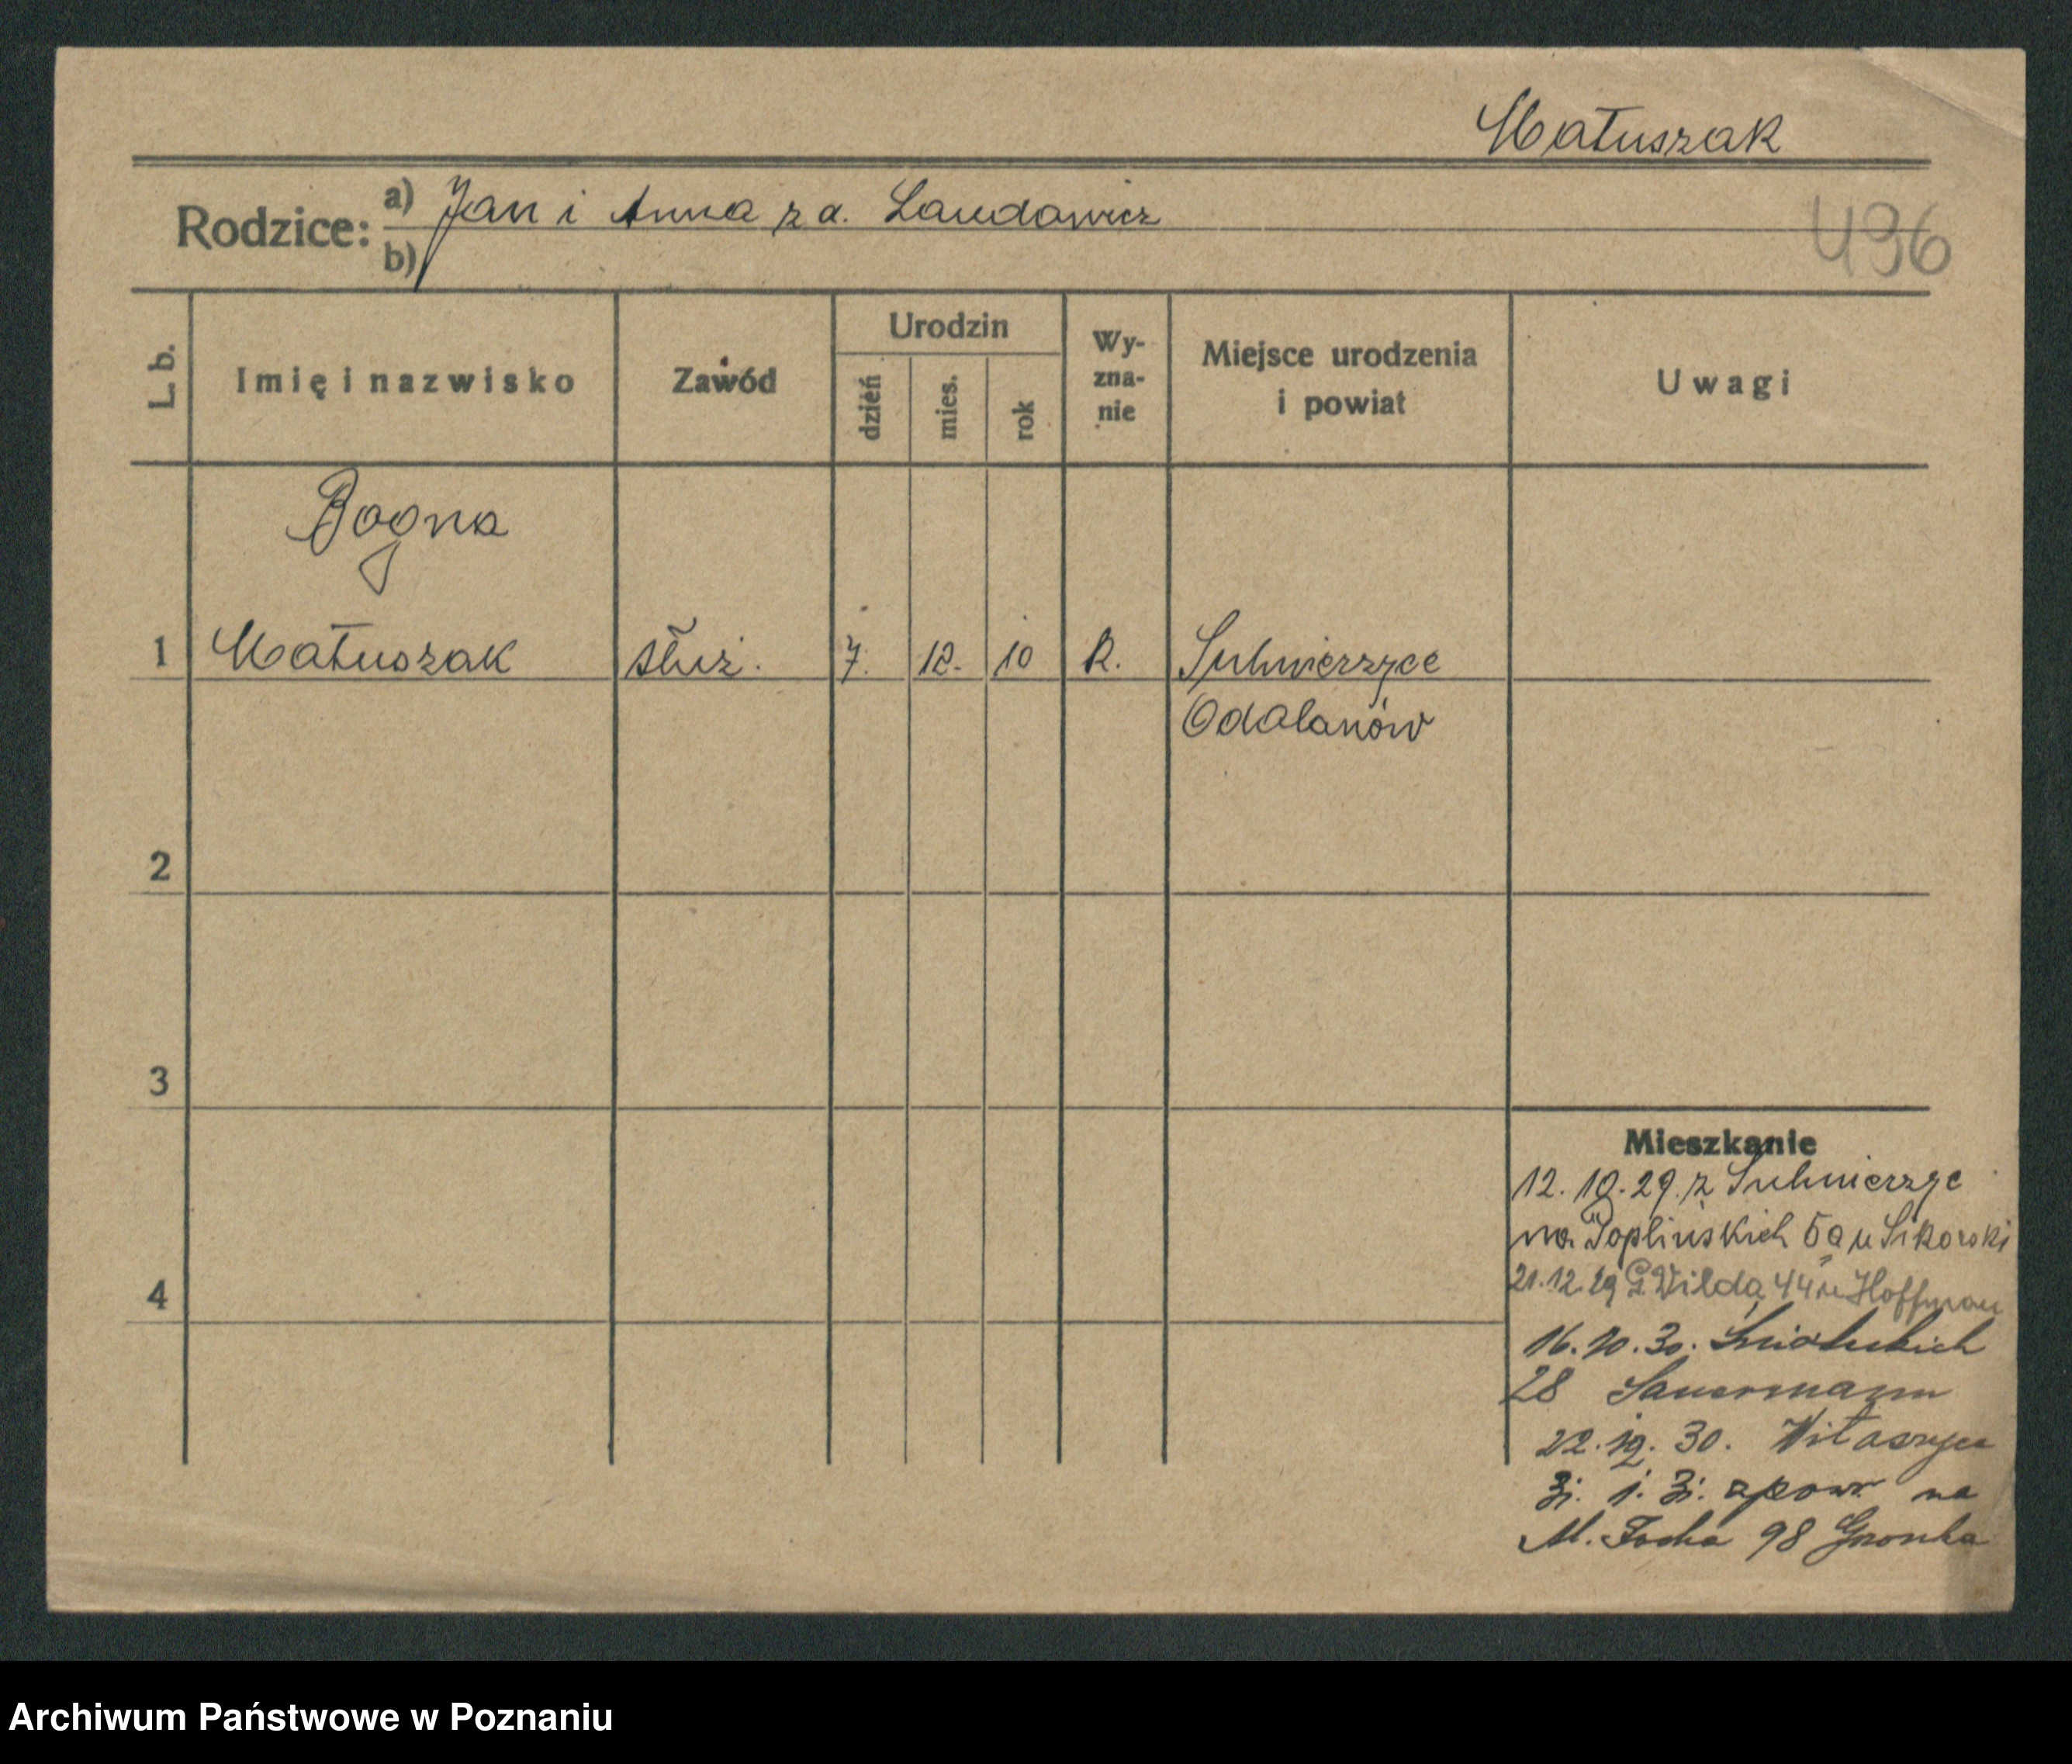 Matuszak
Rodzice: a) Jan i Anna z d. Laudowicz
b)
496
L. b.
Imię i nazwisko
Zawód
Urodzin
dzień
mies.
rok
Wy-
zna-
nie
Miejsce urodzenia
i powiat
Uwagi
Bogna
1 Matuszak służ. 7. 12. 10 R. Sulmierzyce
Odolanów
2
3
4
Mieszkanie
12. 10. 29. z Sulmierzyc
na Poplińskich 5a u Sikorski
21.12.29 G. Wilda 44 u Hoffman
16.10.30. Śniadeckich
28 Sauermann
22. 12. 30. Witaszyce
31. 1. 31. z pow. na
M. Focha 98